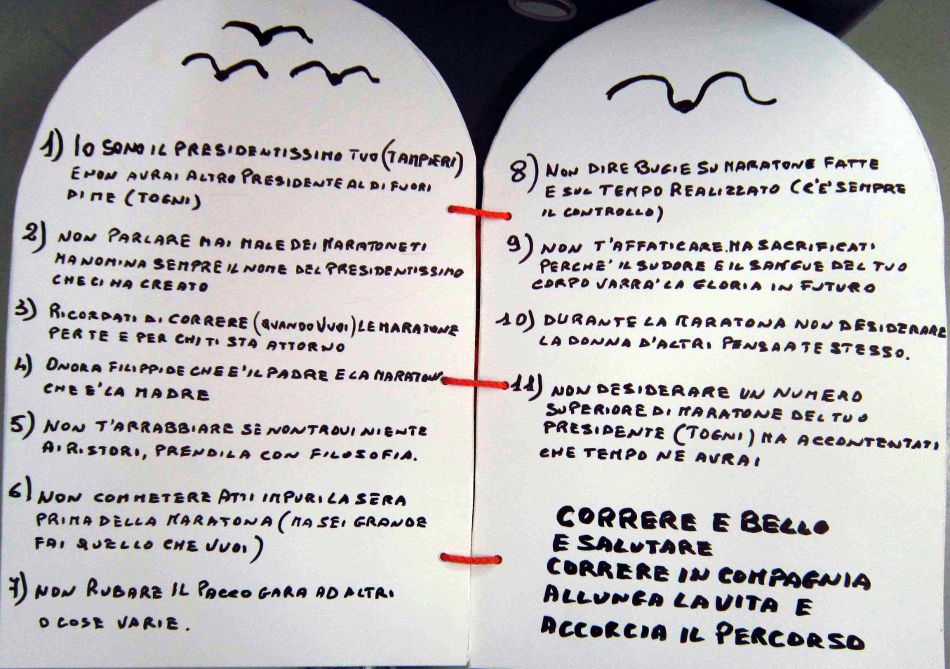 1) IO SONO IL PRESIDENTISSIMO TUO (TAMPIERI)
E NON AVRAI ALTRO PRESIDENTE AL DI FUORI
DI ME (TOGNI)
2) NON PARLARE MAI MALE DEI MARATONETI
MA NOMINA SEMPRE IL NOME DEL PRESIDENTISSIMO
CHE CI HA CREATO
3) RICORDATI DI CORRERE (QUANDO VUOI) LE MARATONE
PER TE E PER CHI TI STA' ATTORNO
4) ONORA FILIPPIDE CHE E' IL PADRE E LA MARATONA
CHE E' LA MADRE
5) NON T'ARRABBIARE SE NON TROVI NIENTE
AI RISTORI, PRENDILA CON FILOSOFIA.
6) NON COMMETERE ATTI IMPURI LA SERA
PRIMA DELLA MARATONA (MA SEI GRANDE
FAI QUELLO CHE VUOI)
7) NON RUBARE IL PACCO GARA AD ALTRI
O COSE VARIE.
8) NON DIRE BUGIE SU MARATONE FATTE
E SUL TEMPO REALIZZATO (C'E' SEMPRE
IL CONTROLLO)
9) NON T'AFFATICARE MA SACRIFICATI
PERCHE' IL SUDORE E IL SANGUE DEL TUO
CORPO VARRA' LA GLORIA IN FUTURO
10) DURANTE LA MARATONA NON DESIDERARE
LA DONNA D'ALTRI PENSA A TE STESSO.
11) NON DESIDERARE UN NUMERO
SUPERIORE DI MARATONE DEL TUO
PRESIDENTE (TOGNI) MA ACCONTENTATI
CHE TEMPO NE AVRAI
CORRERE E BELLO
E SALUTARE
CORRERE IN COMPAGNIA
ALLUNGA LA VITA E
ACCORCIA IL PERCORSO